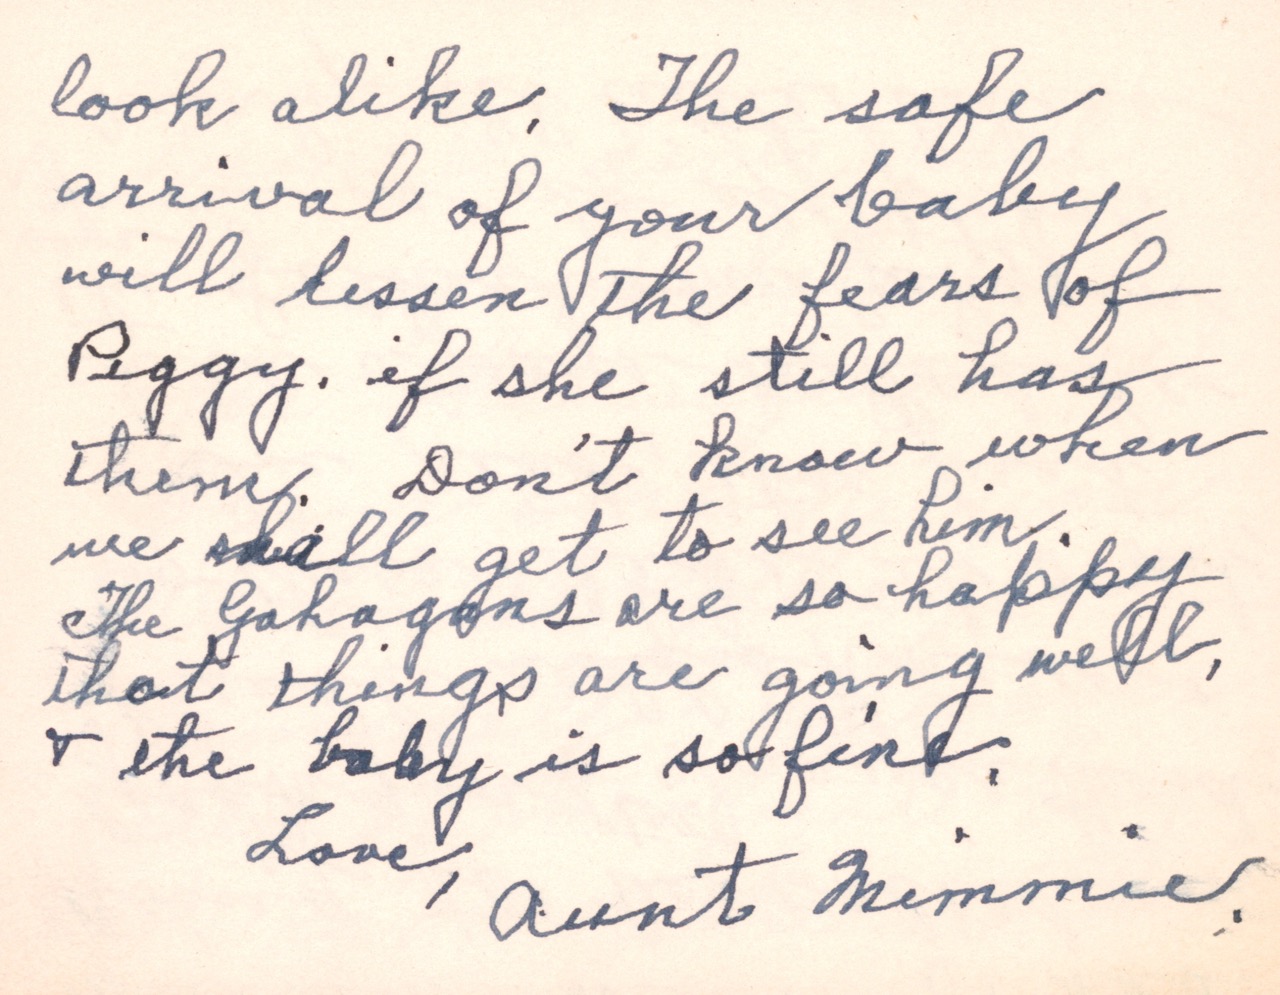 look alike. The safe
arrival of your baby
will lessen the fears of
Peggy. if she still has
them. Don't know when
we shall get to see him.
The Gahagans are so happy
that things are going well,
& the baby is so fine.
Love,
Aunt Mimmie.